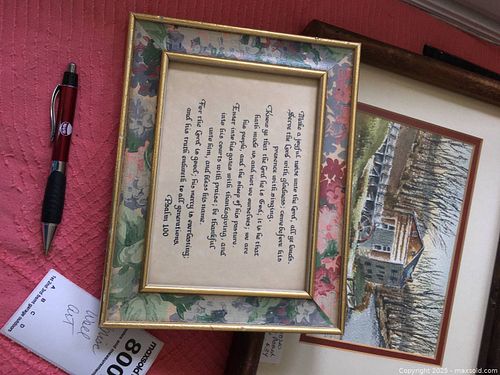 Make a joyful noise unto the Lord, all ye lands.
Serve the Lord with gladness: come before his
presence with singing.
Know ye that the Lord he is God; it is he that
hath made us and not we ourselves; we are
his people, and the sheep of his pasture.
Enter into his gates with thanksgiving, and
into his courts with praise: be thankful
unto him, and bless his name.
For the Lord is good; his mercy is everlasting;
and his truth endureth to all generations.
-Psalm 100
A B C D
Wall
art
800
maxsold
Copyright 2025 - maxsold.com